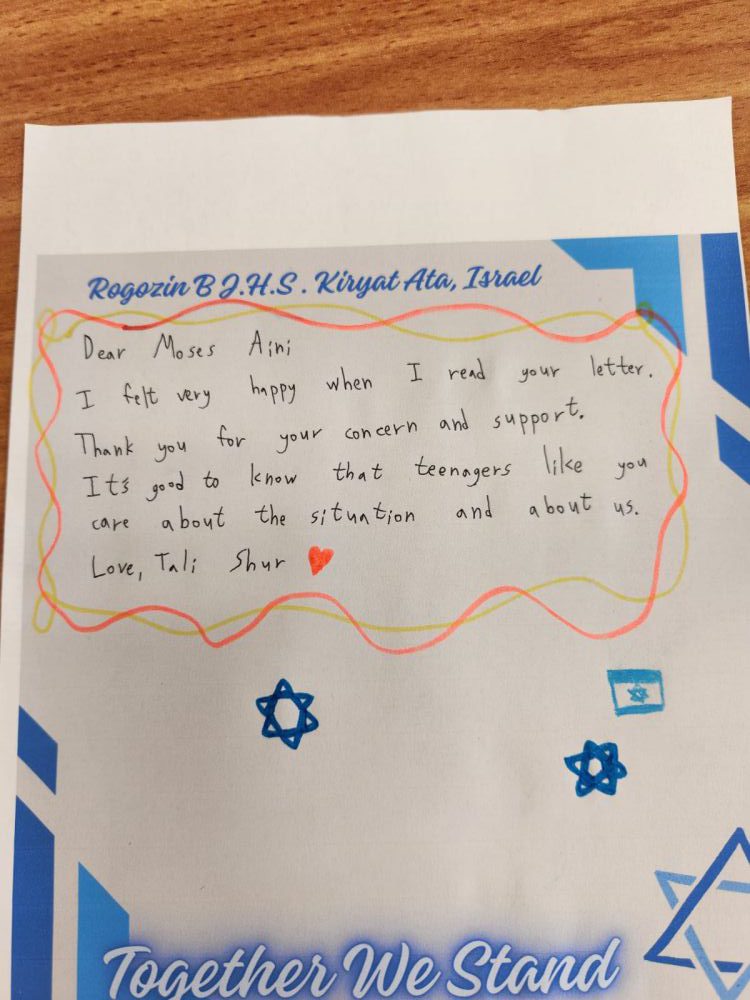 Rogozin B J.H.S. Kiryat Ata, Israel
Dear Moses Aini
I felt very happy when I read your letter.
Thank you for your concern and support.
It's good to know that teenagers like you
care about the situation and about us.
Love, Tali Shur
Together We Stand